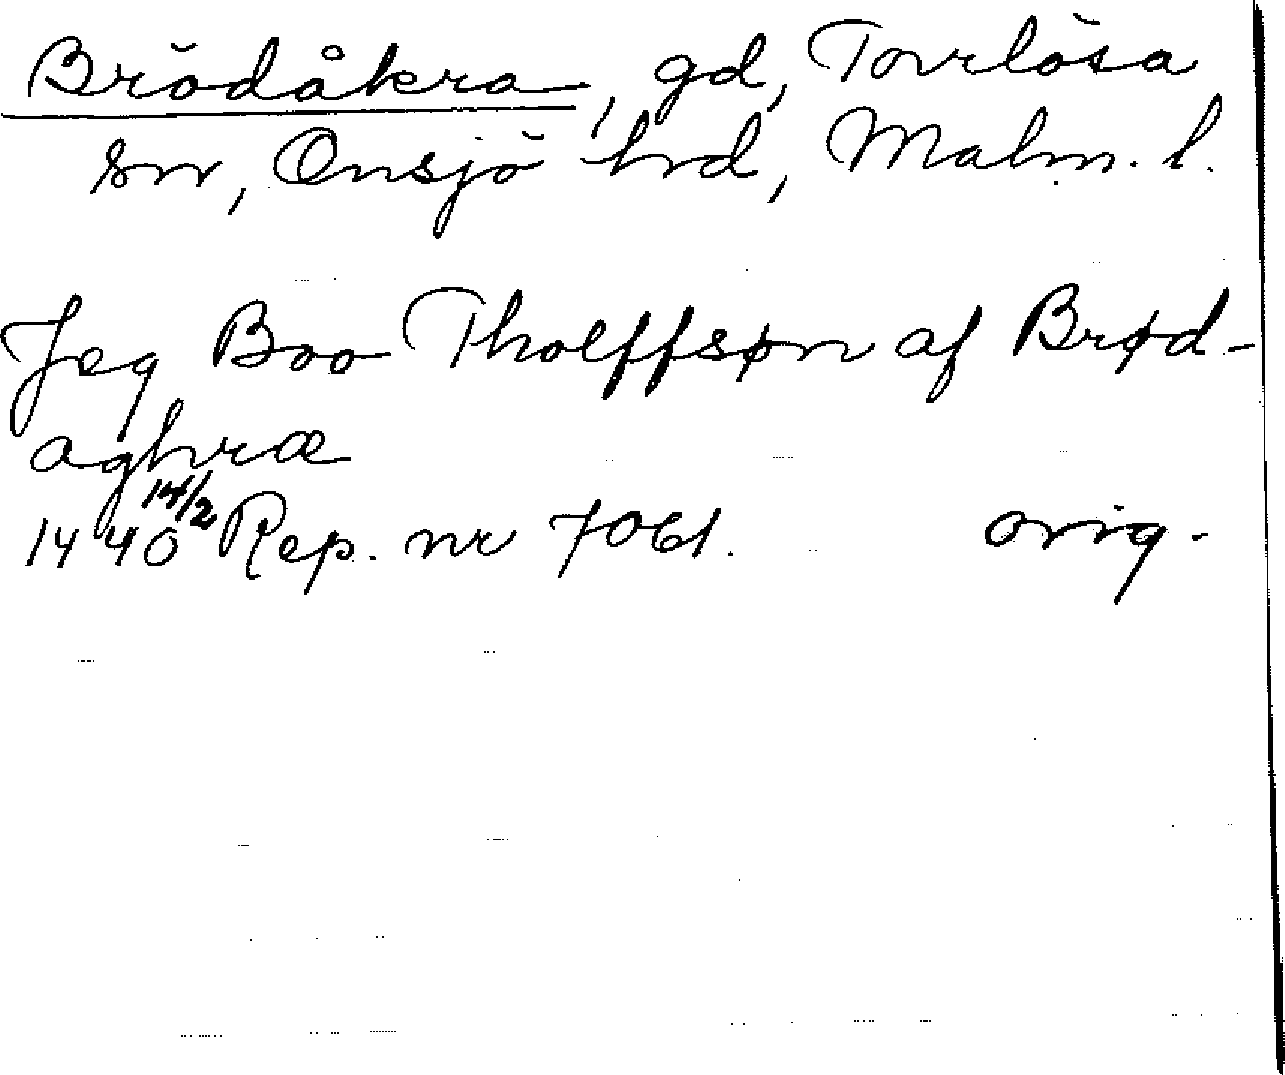 Brödåkra, gd, Torrlösa
sn, Onsjö hrd, Malm. l.
Jeg Boo Tholffsøn af Brød-
aghræ
1440 14/2 Rep. nr 7061. orig.